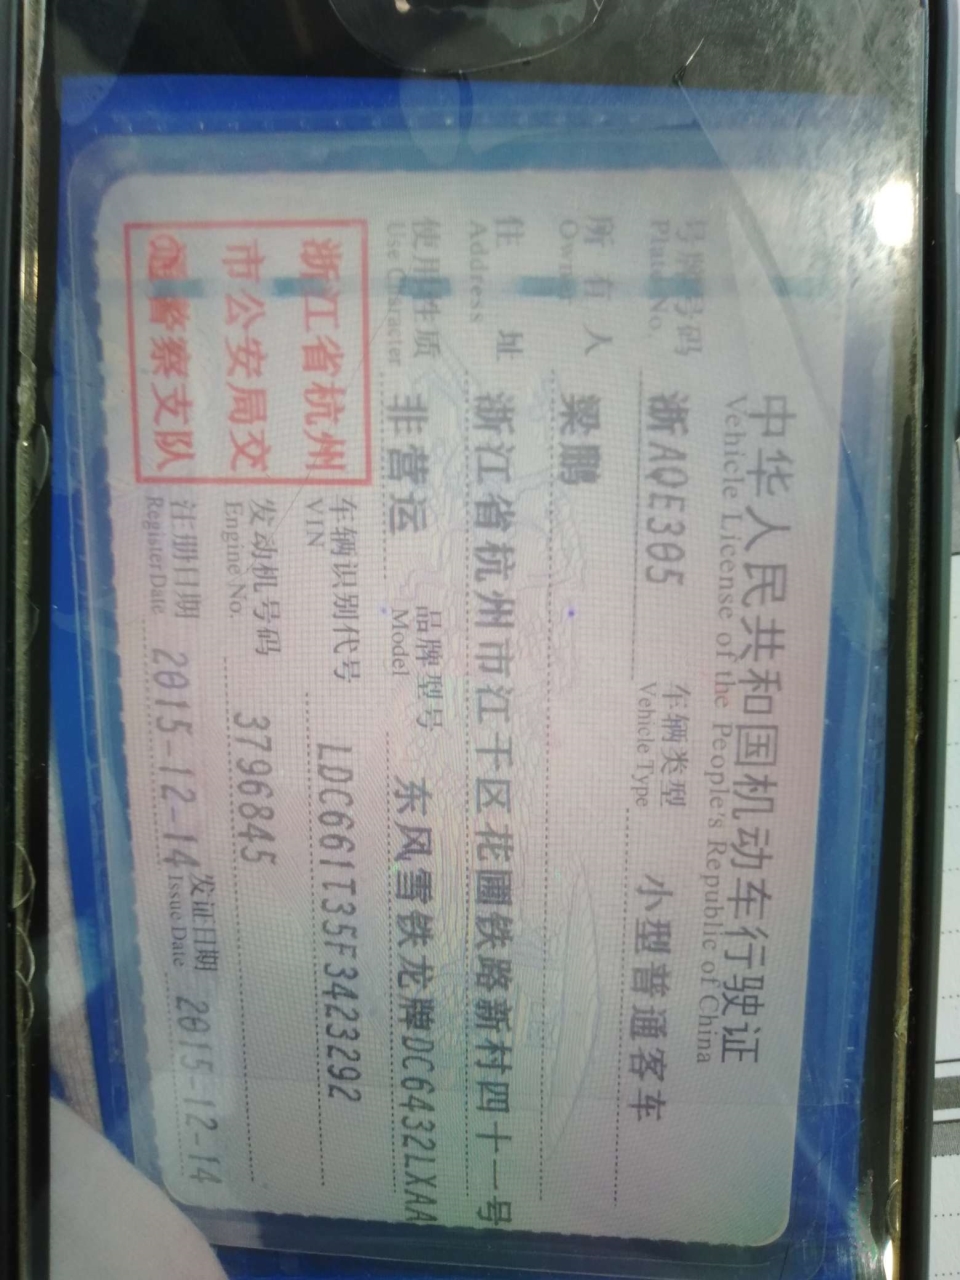 中华人民共和国机动车行驶证
Vehicle License of the People's Republic of China
号牌号码 浙AQE305 车辆类型 小型普通客车
Plate No. Vehicle Type
所有人 梁鹏
Owner
住址 浙江省杭州市江干区花圃铁路新村四十一号
Address
使用性质 非营运 品牌型号 东风雪铁龙牌DC6432LXAA
Use Character Model
浙江省杭州
市公安局交
通警察支队
车辆识别代号 LDC661T35F3423292
VIN
发动机号码 3796845
Engine No.
注册日期 2015-12-14 发证日期 2015-12-14
Register Date Issue Date